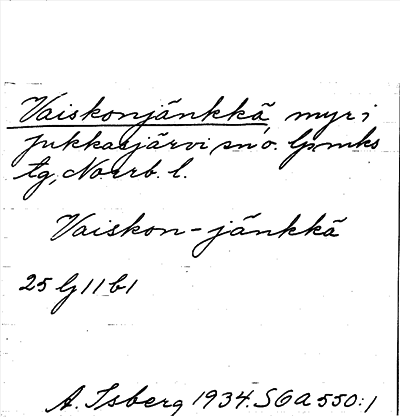 Vaiskonjänkkä, myr i
Jukkasjärvi sn o. lpmks
tg, Norrb. l.
Vaiskon-jänkkä
25 G 11 b 1
A. Isberg 1934. SOA 550:1